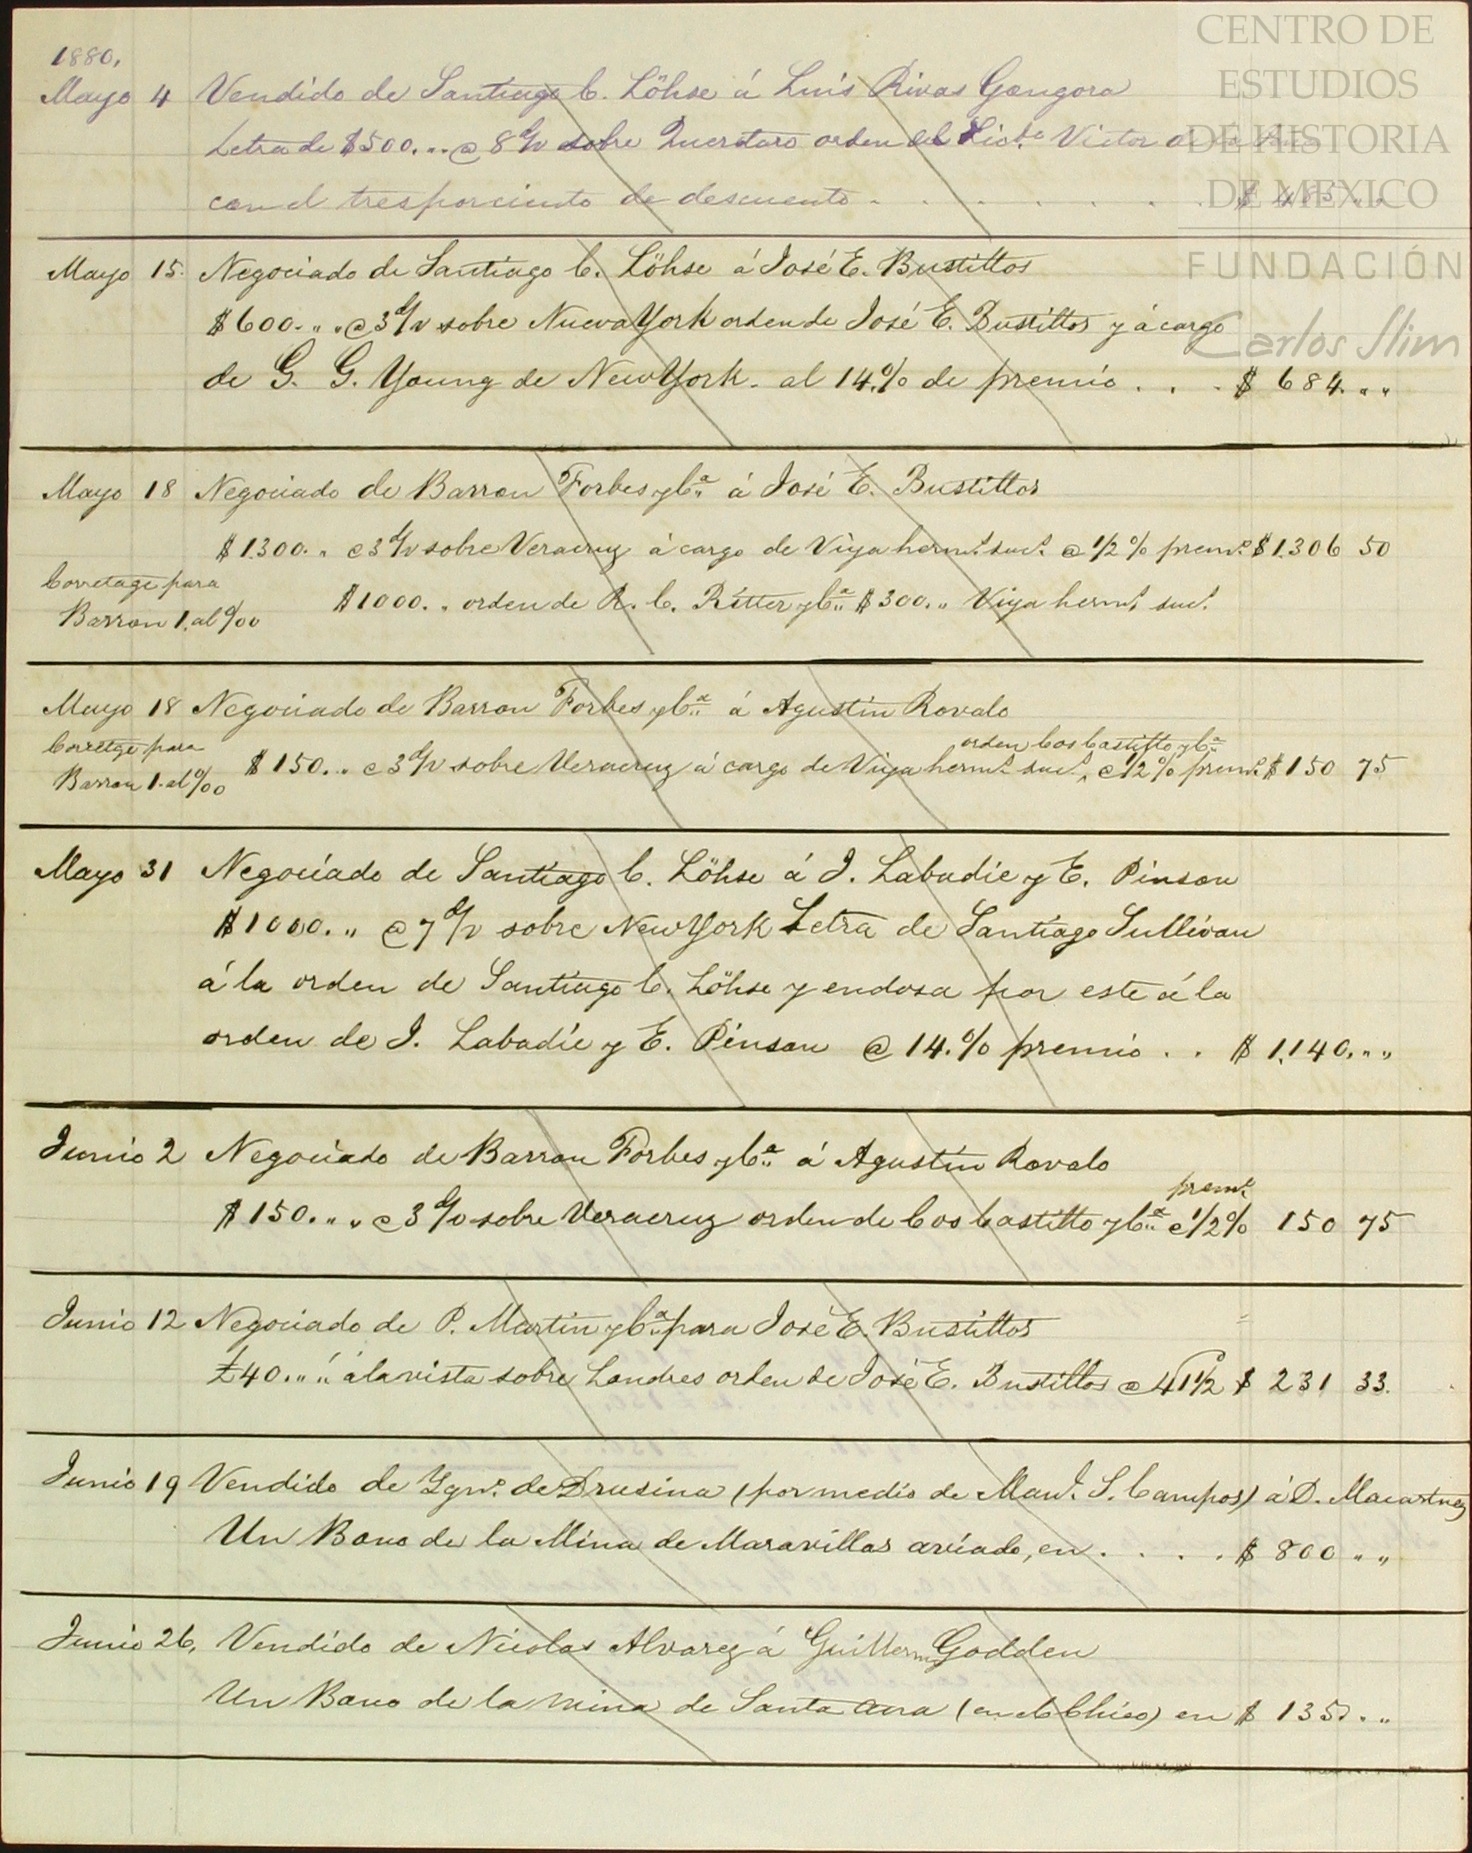 CENTRO DE
ESTUDIOS
DE HISTORIA
DE MEXICO
FUNDACIÓN
Carlos Slim
1880,
Mayo 4 Vendido de Santiago C. Löhse á Luis Rivas Gongora
Letra de $500. .. @ 8 d/v sobre Queretaro orden del Licdo Victor de
con el tresporciento de descuento . . . . . . . $ 485 ..
Mayo 15. Negociado de Santiago C. Löhse á José E. Bustillos
$600. .. @ 3 d/v sobre Nueva York orden de José E. Bustillos y á cargo
de G. G. Young de New York. al 14.% de premio . . . $ 684. ..
Mayo 18 Negociado de Barron Forbes y Cª á José E. Bustillos
$1300. .. @ 3 d/v sobre Veracruz á cargo de Viya hermˢ sucˢ @ 1/2 % premº $1.306 50
Corretage para
Barron 1. al 0/00
$1000. .. orden de R. C. Ritter y Cª $300. .. Viya hermˢ sucˢ
Mayo 18 Negociado de Barron Forbes y Cª á Agustin Rovalo
Corretge para
Barron 1. al 0/00
orden Cos Castillo y Cª
$150. .. @ 3 d/v sobre Veracruz á cargo de Viya hermˢ sucˢ, @ 1/2 % premº $150 75
Mayo 31 Negociado de Santiago C. Löhse á J. Labadie y E. Pinson
$1000. .. @ 7 d/v sobre New York Letra de Santiago Sullivan
á la orden de Santiago C. Löhse y endosa por este á la
orden de J. Labadie y E. Pinson @ 14.% premio . . $ 1.140. ..
Junio 2 Negociado de Barron Forbes y Cª á Agustin Rovalo
premº
$150. .. @ 3 d/v sobre Veracruz orden de Cos Castillo y Cª @ 1/2% 150 75
Junio 12 Negociado de P. Martin y Cª para José E. Bustillos
£40. .. .. á la vista sobre Londres orden de José E. Bustillos @ 41 1/2 $ 231 33.
Junio 19 Vendido de Ygnº de Drusina (por medio de Manˡ S. Campos) á D. Macartney
Un Bono de la Mina de Maravillas aviado, en . . . . $ 800 ..
Junio 26, Vendido de Nicolas Alvarez á Guillermo Godden
Un Bono de la mina de Santa Ana (en el Chico) en $ 135. ..